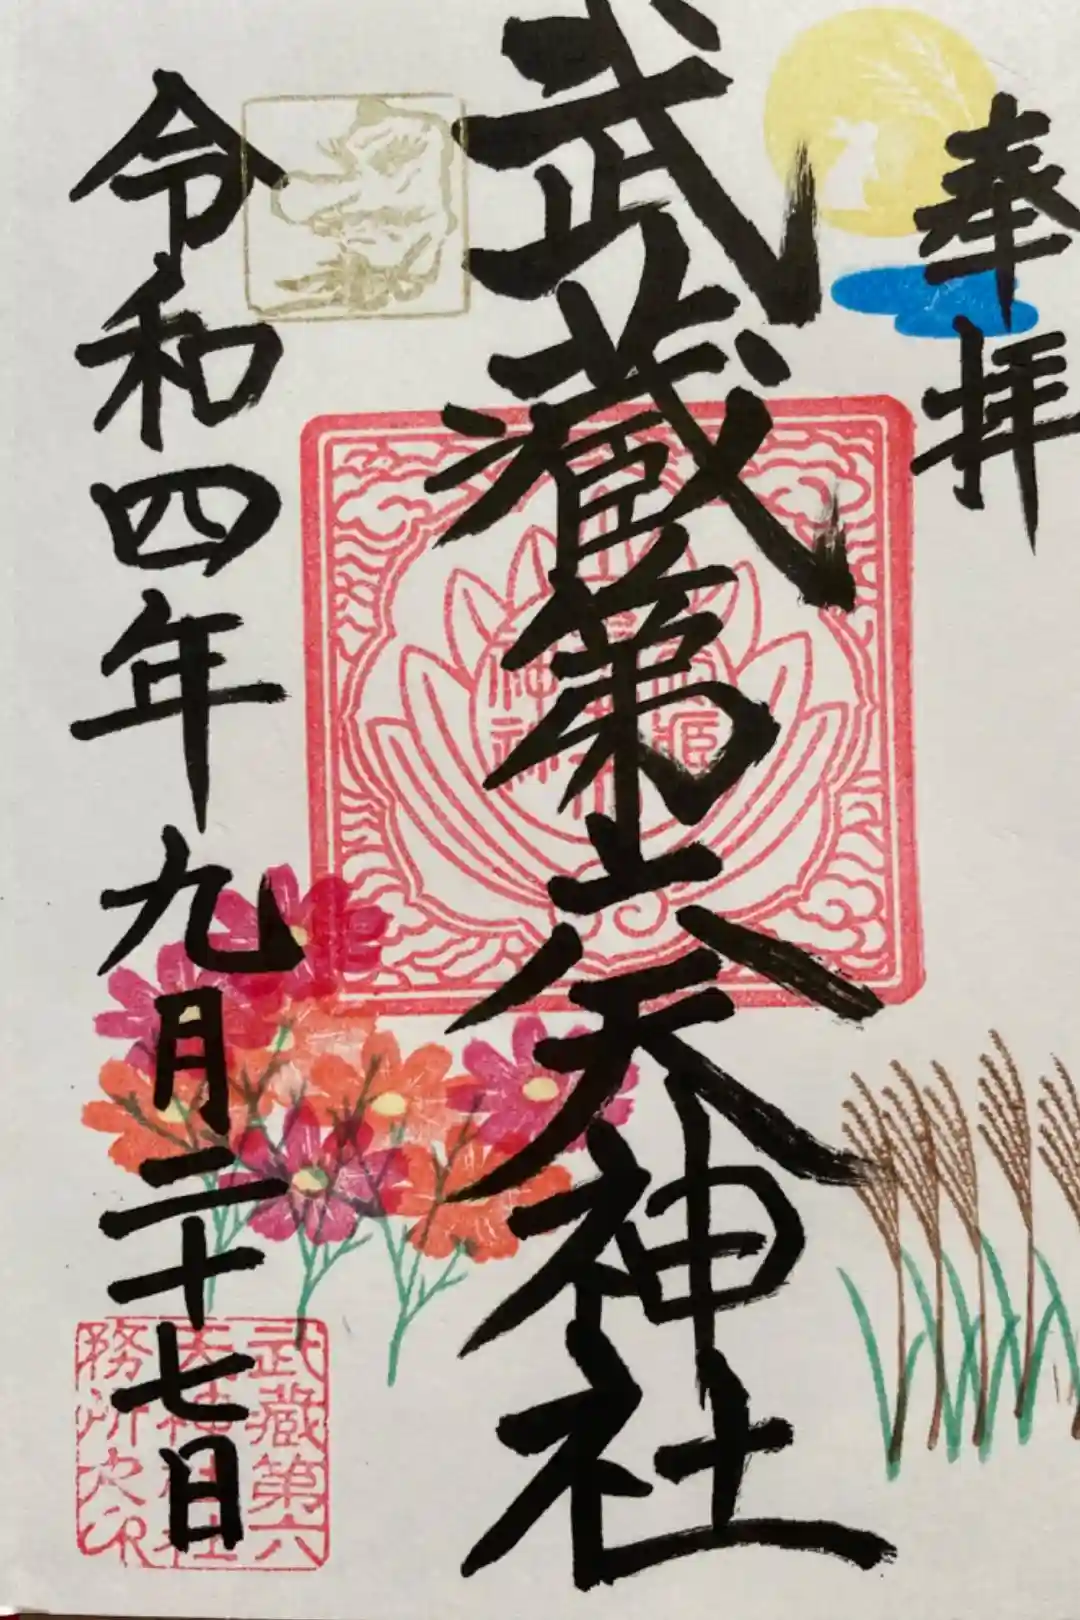 奉拝
武蔵第六天神社
令和四年九月二十七日
武蔵第六
天神社社
務所之印